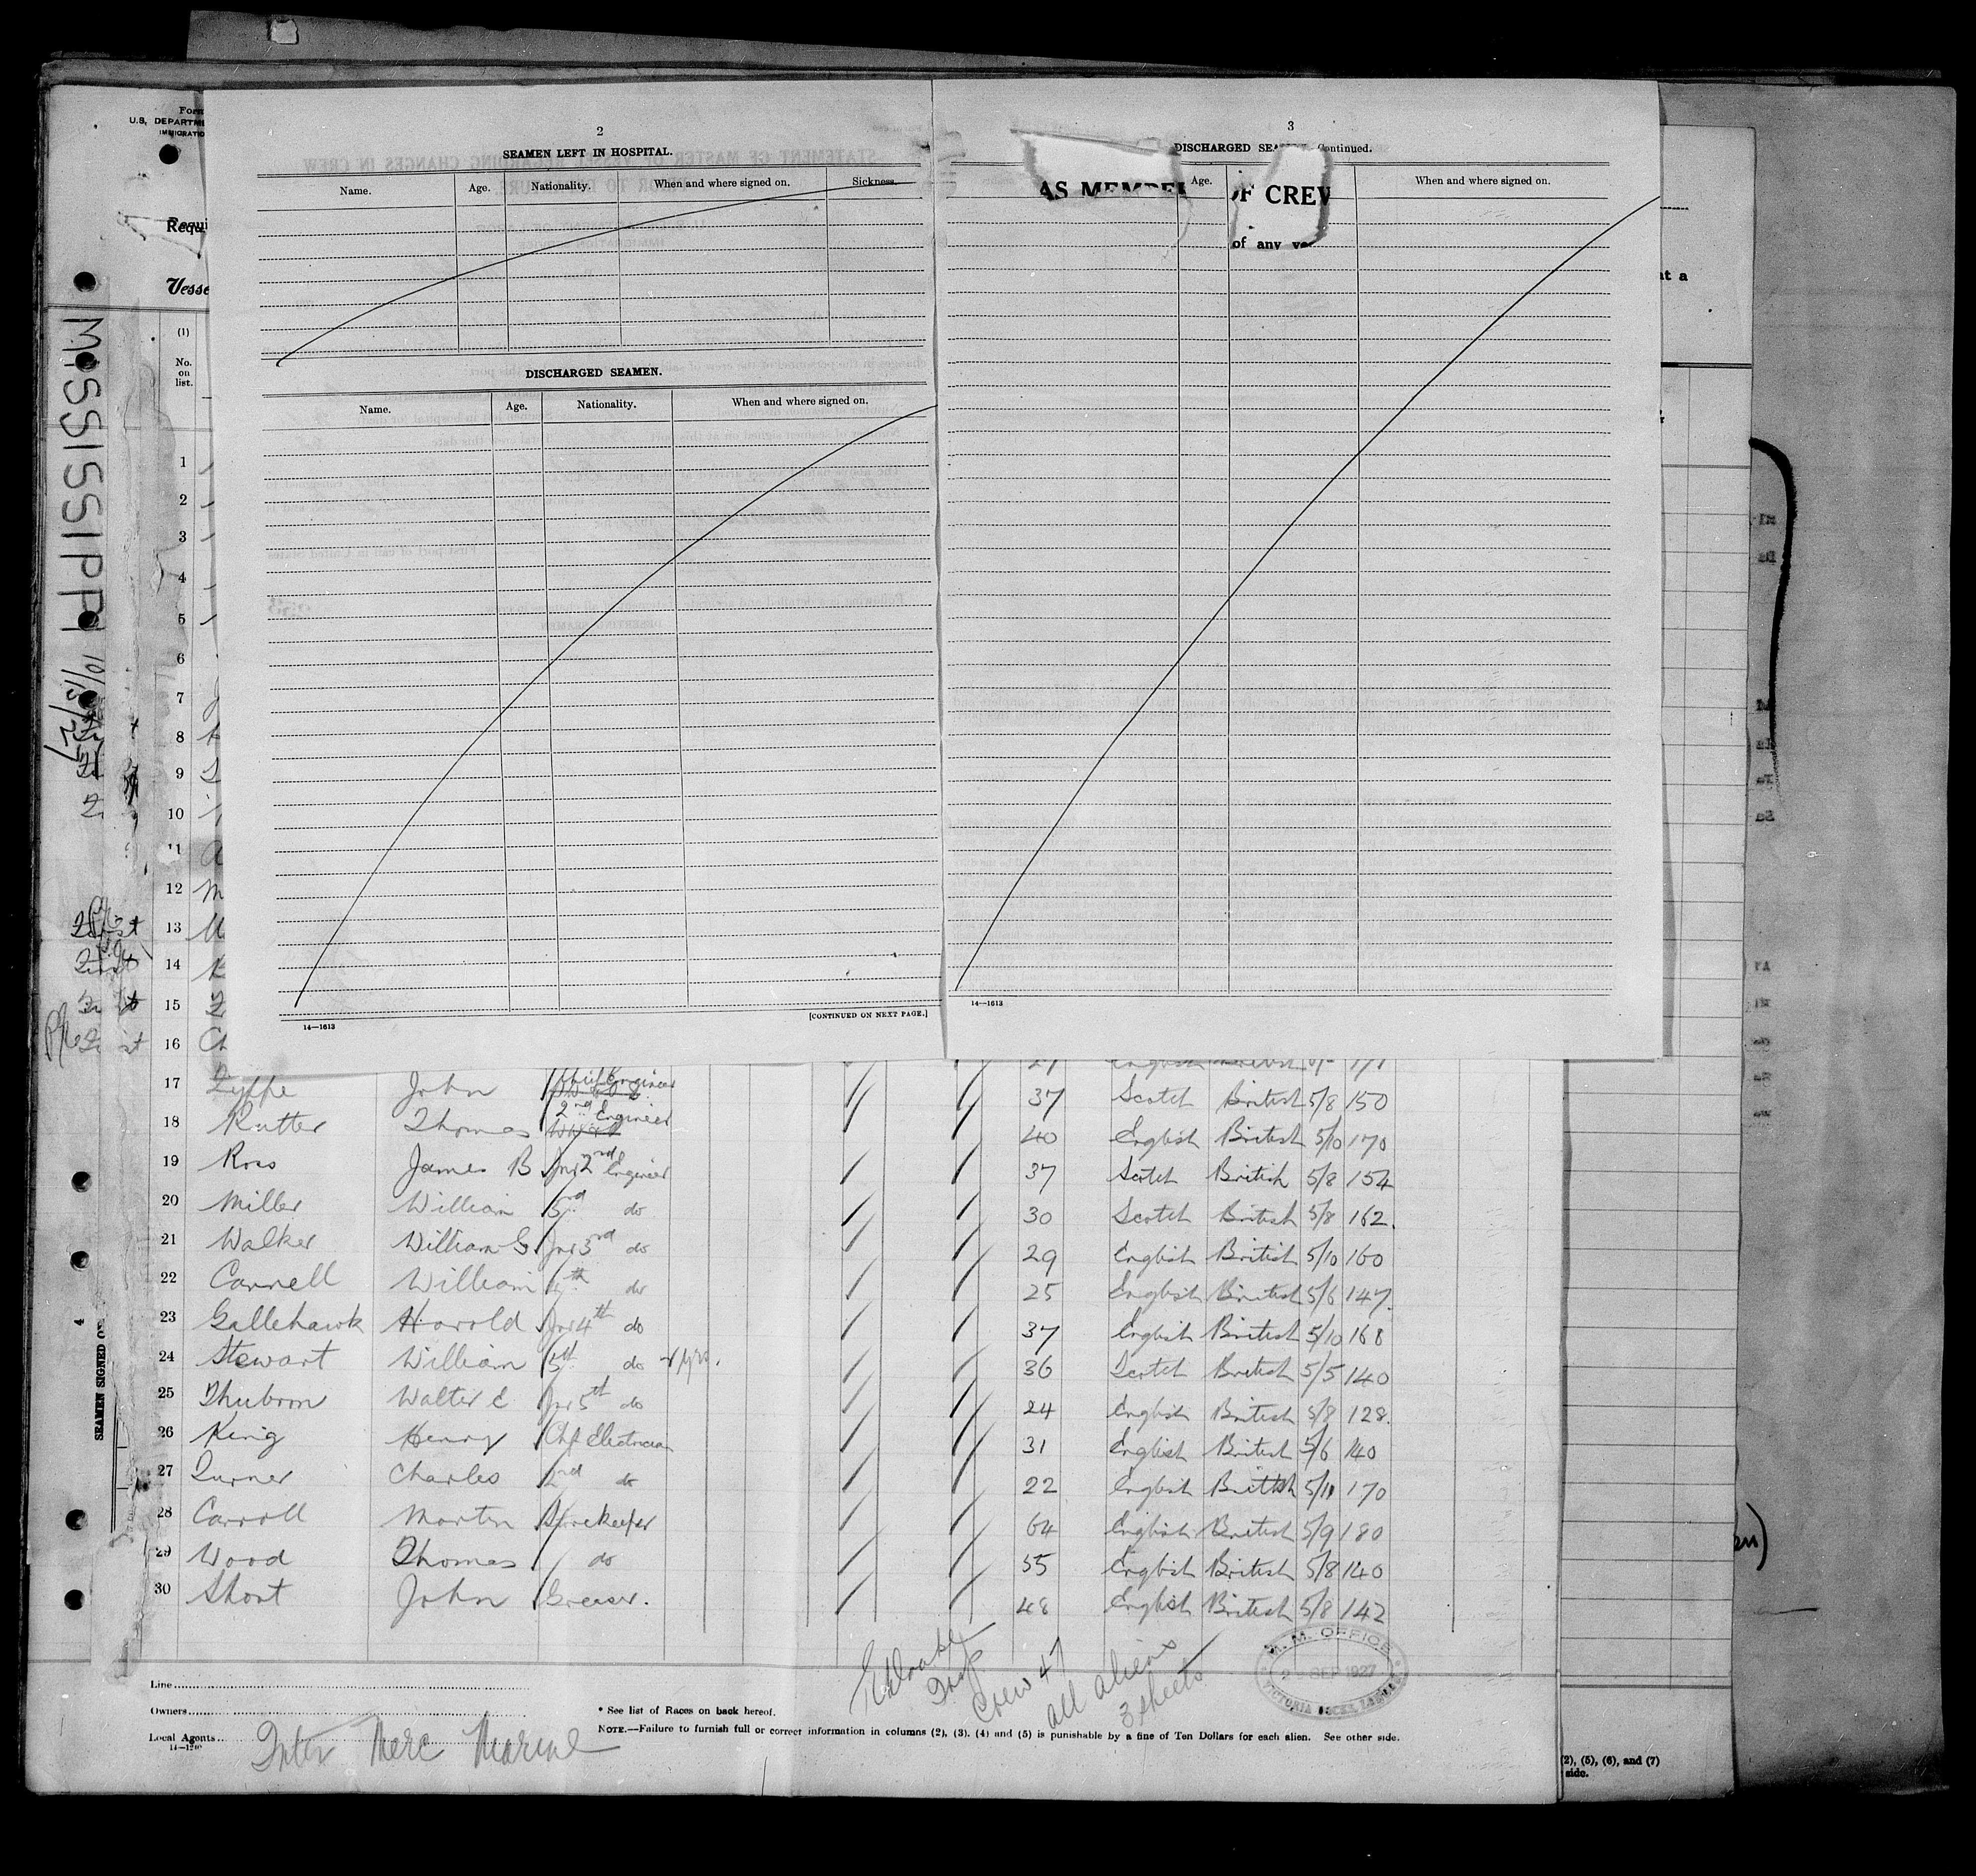 Form
U.S. DEPARTME
IMMIGRATIO
Requi
Vesse
(1)
No.
on
list.
MISSISSIPPI 10/13/27
2
SEAMEN LEFT IN HOSPITAL.
Name. Age. Nationality. When and where signed on. Sickness.
DISCHARGED SEAMEN.
Name. Age. Nationality. When and where signed on.
14—1613 [CONTINUED ON NEXT PAGE.]
3
DISCHARGED Continued.
Age. When and where signed on.
AS OF CREW
of any
14—1613
at a
1
2
3
4
5
6
7
8
9
10
11
12 M
13
14
15
16 Ch
17 John Chief Engineer 37 Scotch British 5/8 150
18 Rutter Thomas 2nd Engineer 40 English British 5/10 170
19 Ross James B Jnr 2nd Engineer 37 Scotch British 5/8 154
20 Miller William 3rd do 30 Scotch British 5/8 162.
21 Walker William G Jnr 3rd do 29 English British 5/10 160
22 Cannell William 4th do 25 English British 5/6 147.
23 Gallehawk Harold Jnr 4th do 37 English British 5/10 168
24 Stewart William 5th do 36 Scotch British 5/5 140
25 Thubron Walter E Jnr 5th do 24 English British 5/8 128.
26 King Henry Chf Electrician 31 English British 5/6 140
27 Turner Charles 2nd do 22 English British 5/11 170
28 Carroll Martin Storekeeper 64 English British 5/9 180
29 Wood Thomas do 55 English British 5/8 140
30 Short John Greaser. 48 English British 5/8 142
4
SEAMEN SIGNED ON
Crew 47
all aliens
3 sheets
M. M. OFFICE
SEP 1927
VICTORIA
Line
Owners
Local Agents
14—1240
Inter Merc Marine
* See list of Races on back hereof.
NOTE.—Failure to furnish full or correct information in columns (2), (3), (4) and (5) is punishable by a fine of Ten Dollars for each alien. See other side.
(2), (5), (6), and (7)
side.